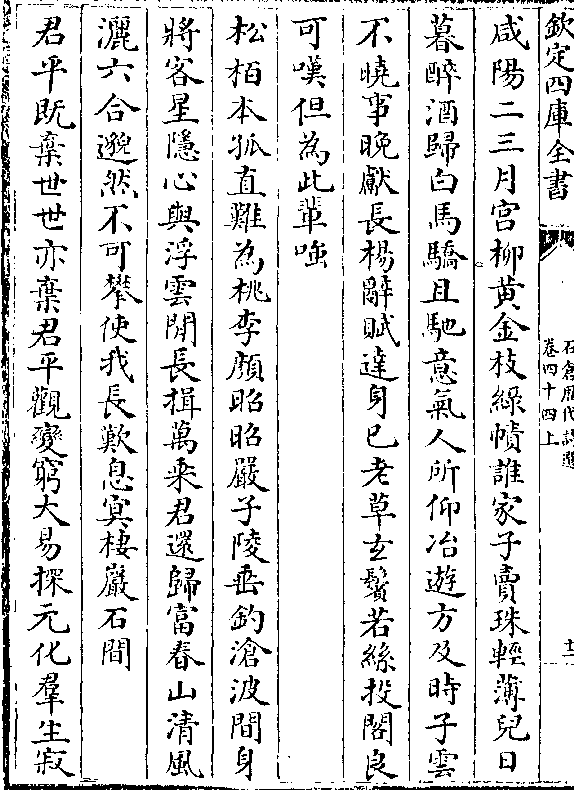 欽定四庫全書
石倉歷代詩選
卷四十四上
十一
咸陽二三月宫柳黄金枝綠幘誰家子賣珠輕薄兒日
暮醉酒歸白馬驕且馳意氣人所仰冶遊方及時子雲
不曉事晚獻長楊辭賦達身已老草玄鬢若絲投閣良
可嘆但為此輩嗤
松栢本孤直難為桃李顔昭昭嚴子陵垂釣滄波間身
將客星隱心與浮雲閒長揖萬乗君還歸富春山清風
灑六合邈然不可攀使我長歎息冥棲巖石間
君平既棄世世亦棄君平觀變窮大易探元化羣生寂